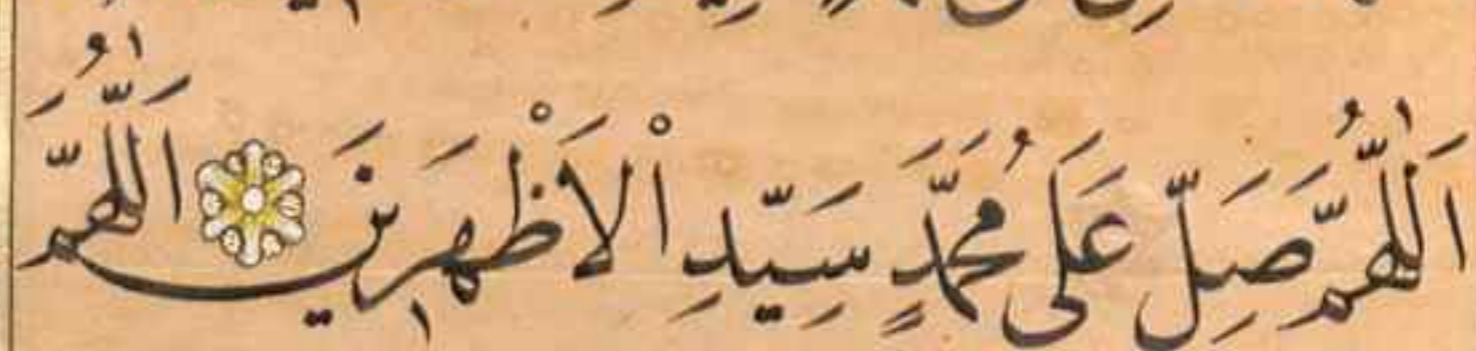 اَللّٰهُمَّ صَلِّ عَلَى مُحَمَّدٍ سَيِّدِ الْاَظْهَرِينَ اَللّٰهُمَّ